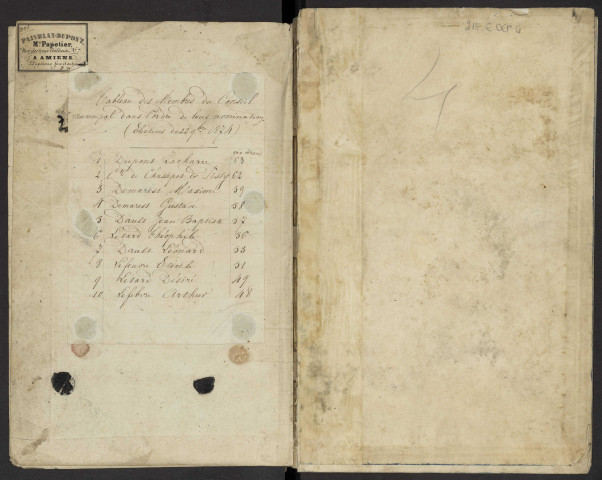 PAINBLAN-DUPONT,
Md Papetier,
A AMIENS
Tableau des Membres du Conseil
Municipal dans l'ordre de leur nomination
(Elections du 22 9bre 1874)
1 Dupont Zacharie 63
2 Cte de Chassepot de Pissy 62
3 Demarest Maxime 59
4 Demarest Gustave 58
5 Dault Jean Baptiste 57
6 Lésard Théophile 56
7 Dault Léonard 55
8 Lefeuvre 51
9 Lésard Désiré 49
10 Lefebvre Arthur 48
4